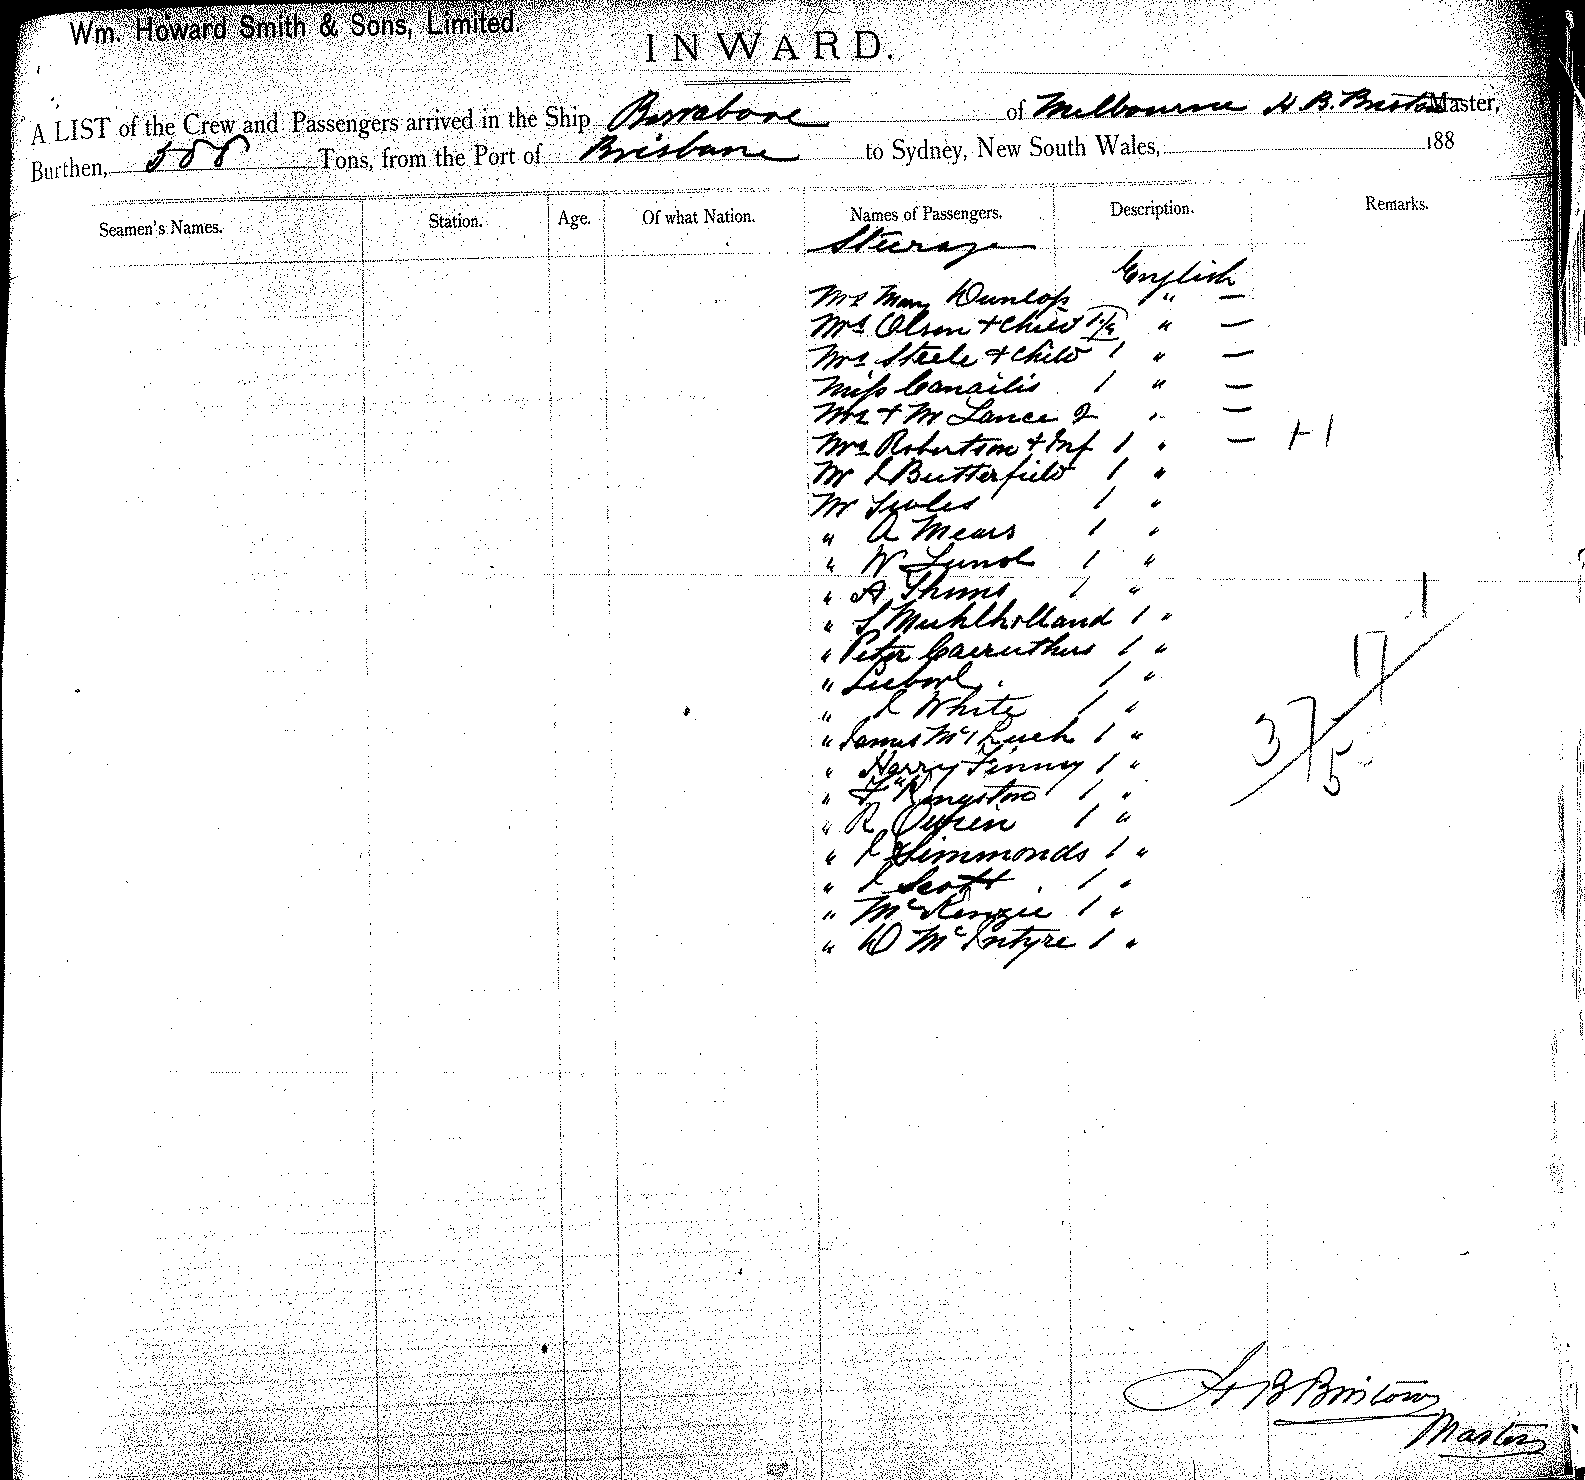 Wm. Howard Smith & Sons, Limited.
INWARD.
A LIST of the Crew and Passengers arrived in the Ship Burrabone of Melbourne H. B. Bristow Master,
Burthen, 588 Tons, from the Port of Brisbane to Sydney, New South Wales, 188
Seamen's Names. Station. Age. Of what Nation. Names of Passengers. Description. Remarks.
Steerage
English
Mrs Mary Dunlop " —
Mrs Olson + Child 1 1/2 " —
Mrs Steele + Child 1 " —
Miss 1 " —
Mrs + Mr Lance 2 " —
Mrs Robertson + Inf 1 " — + 1
Mr J Butterfield 1 "
Mr 1 "
" A Mears 1 "
" W 1 "
" A 1 "
" S Muhlholland 1 "
" Peter Carruthers 1 "
" 1 "
" J White 1 "
" James Mc 1 "
" Harry Finney 1 "
" F Kingston 1 "
" R 1 "
" J Simmonds 1 "
" J Scott 1 "
" McKenzie 1 "
" D McIntyre 1 "
1
17
37
5
H B Bristow
Master